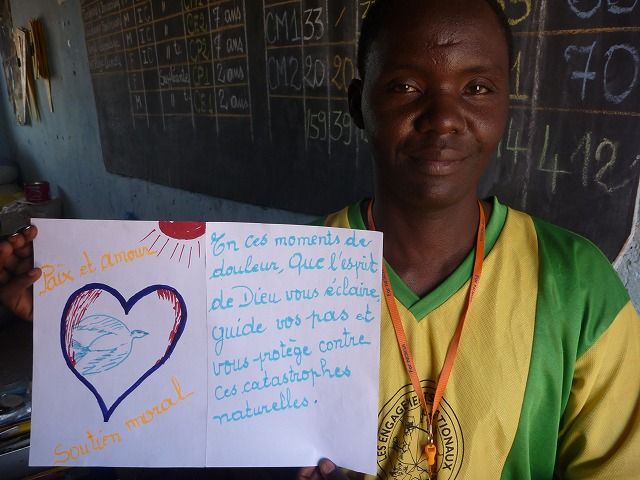 CM1 33
5
CE2 7 ans
CP2 7 ans
CP1 2 ans
CM2 20 20
70
M " " CE1 2 ans
159 39
144 12
Paix et amour
Soutien moral
En ces moments de
douleur, Que l'esprit
de Dieu vous éclaire,
guide vos pas et
vous protège contre
ces catastrophes
naturelles.
LES ENGAGÉS